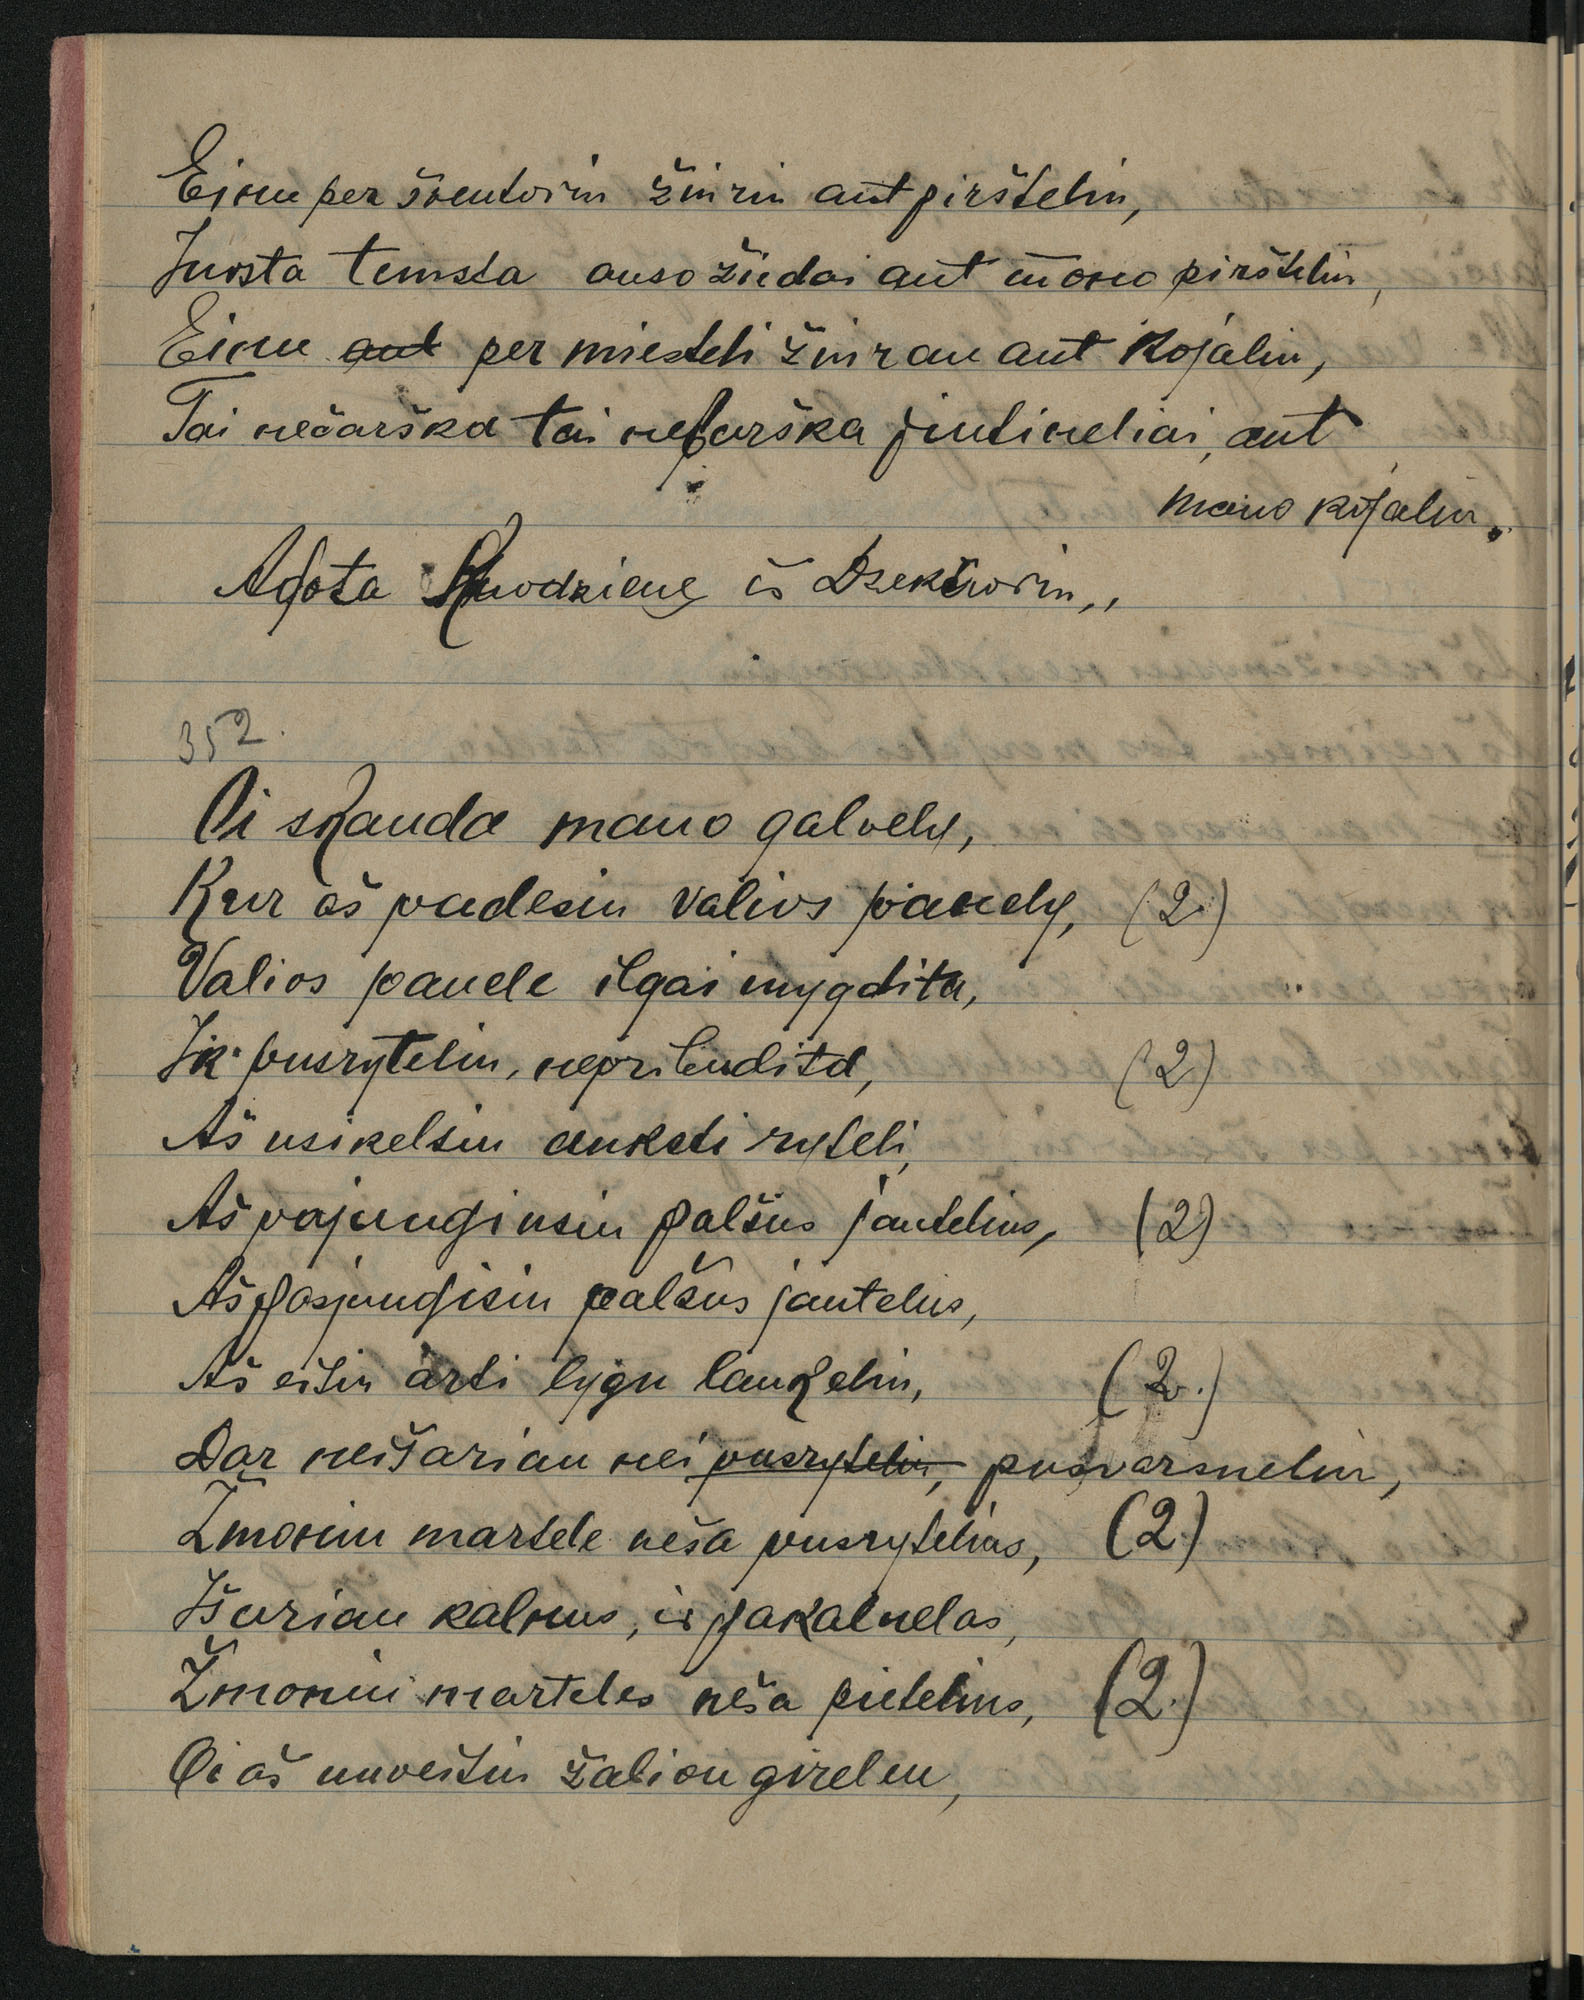 Einu per šventoriu žiuriu ant piršteliu,
Juosta temsta auso žiedai ant mano piršteliu,
Einu ant per miesteli žiurau ant kojaliu,
Tai nečarška tai nebarška pintineliai, ant
mano kojaliu.
Agota iš
352.
Oi skauda mano galvely,
Kur aš padesiu valios panely, (2.)
Valios panele ilgai mygdita,
Ik pusryteliu, nepribudita, (2)
Aš usikelsiu anksti ryteli,
Aš pajunginsiu palšus jautelius, (2)
Aš pasjungisiu palšus jautelius,
Aš eisiu arti lygu laukeliu, (2.)
Dar neišariau nei pusryteliu, pusvarsneliu,
Žmoniu martele neša pusrytelius, (2)
Išariau kalnus, ir pakalnelas,
Žmoniu marteles neša pietelius, (2.)
Oi aš nuveisiu žaliou girelen,